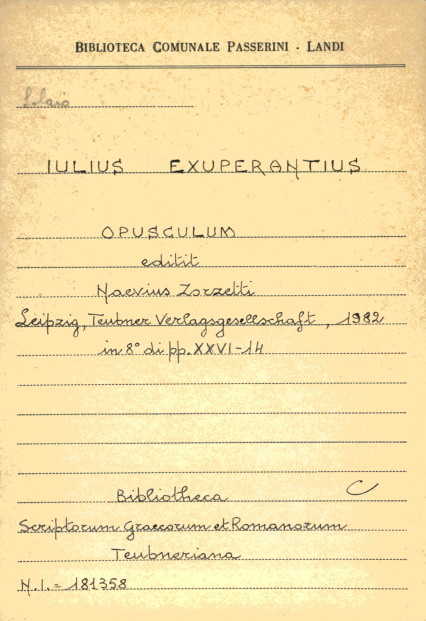 BIBLIOTECA COMUNALE PASSERINI - LANDI
IULIUS EXUPERANTIUS
OPUSCULUM
editit
Naevius Zorzetti
Leipzig, Teubner Verlagsgesellschaft, 1982
in 8° di pp. XXVI-14
Bibliotheca C
Scriptorum Graecorum et Romanorum
Teubneriana
N.I. = 181358